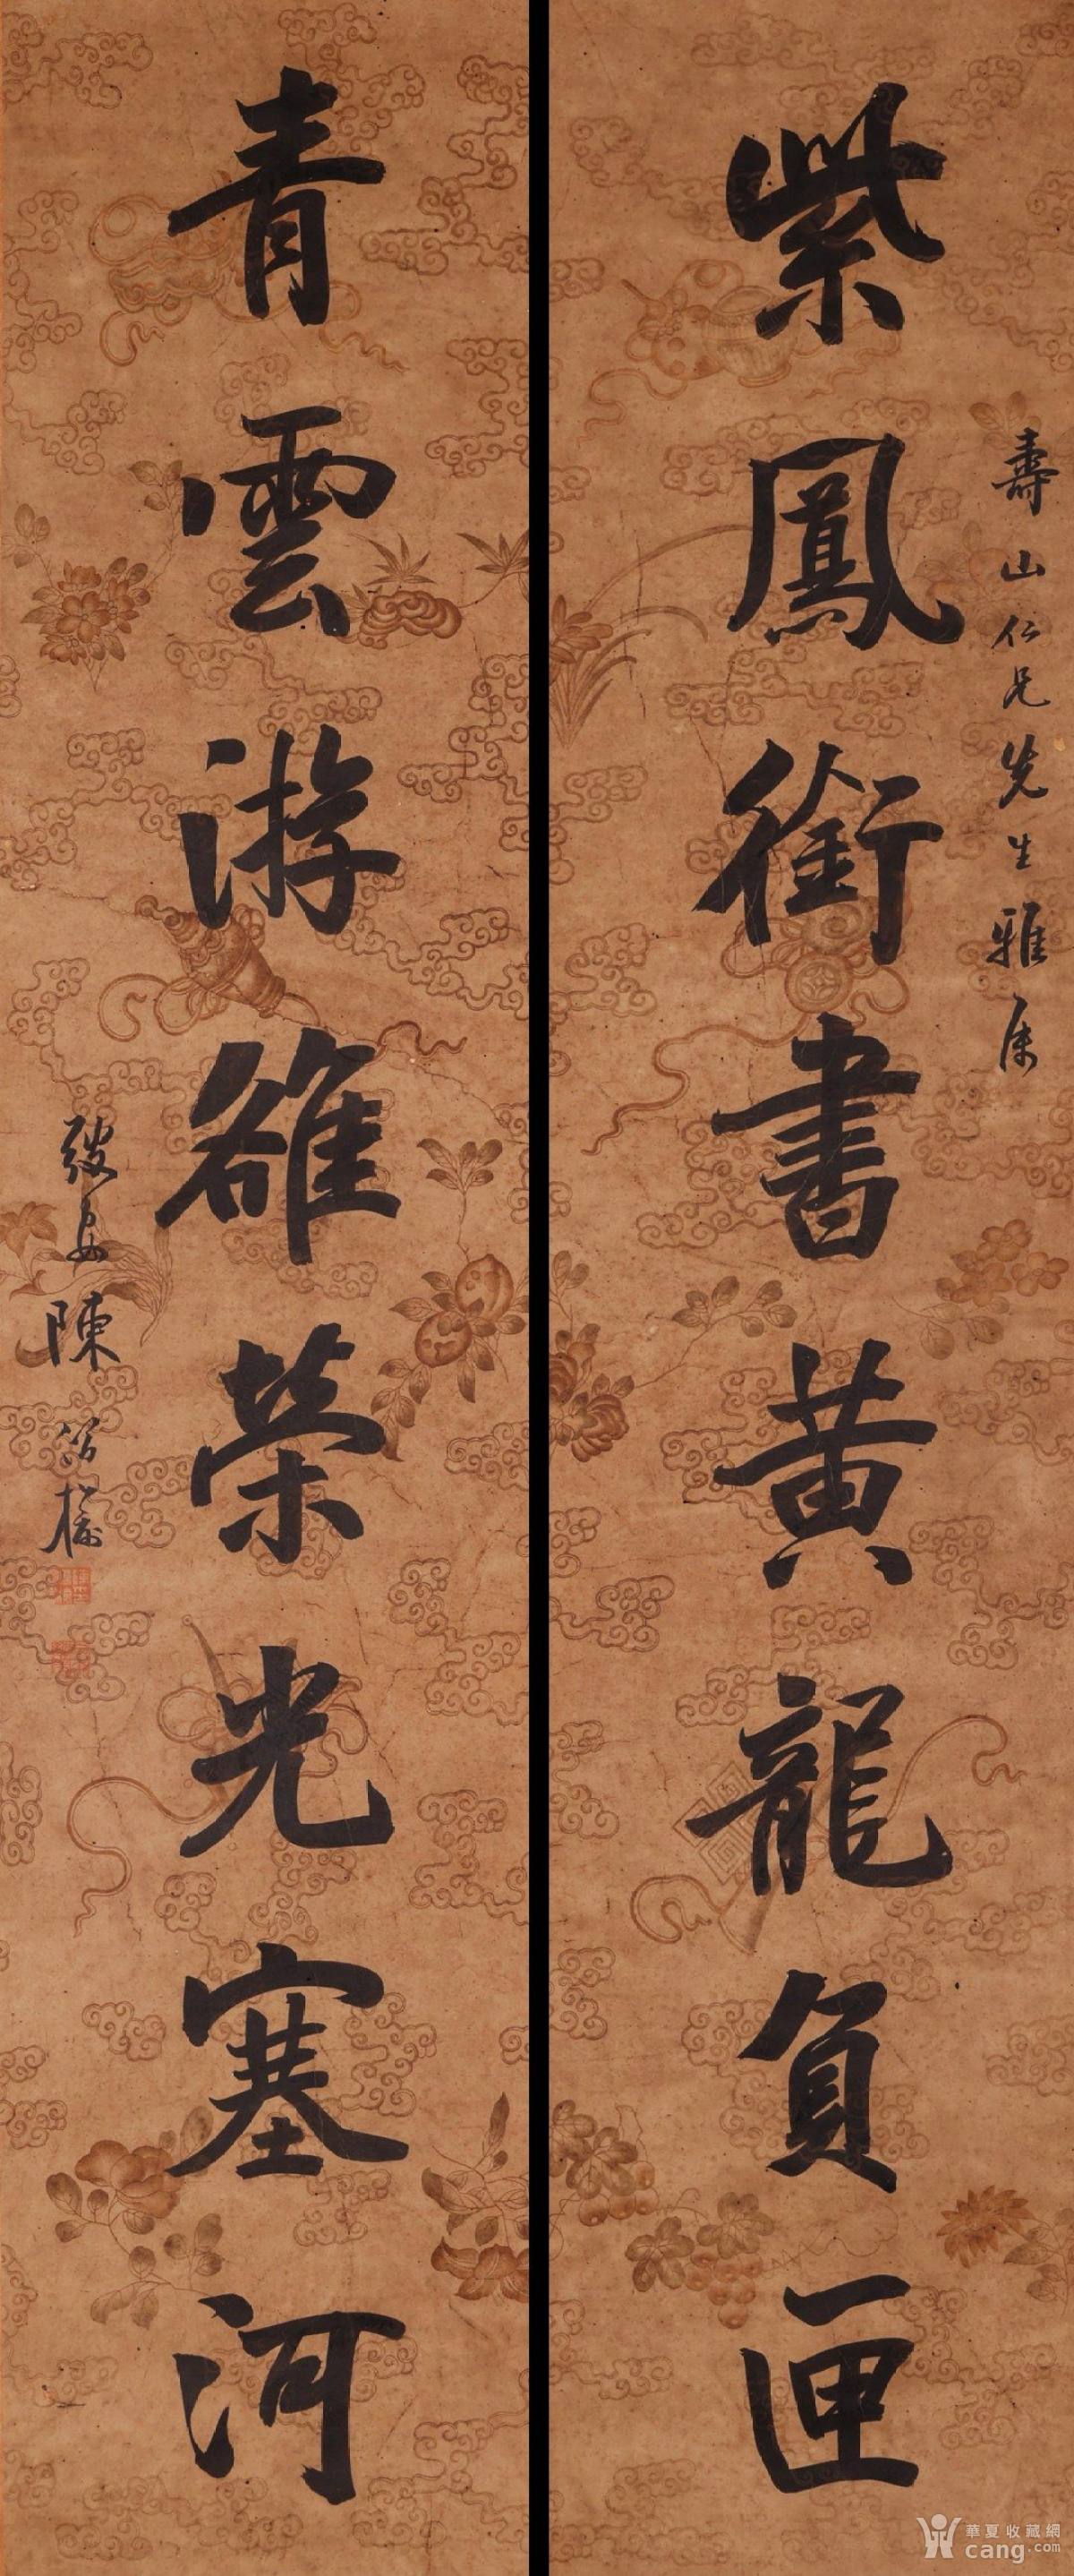 壽山仁兄先生雅屬
紫鳳銜書黃龍負匣
青雲游雒榮光塞河
弢安陳
華夏收藏網
cang.com